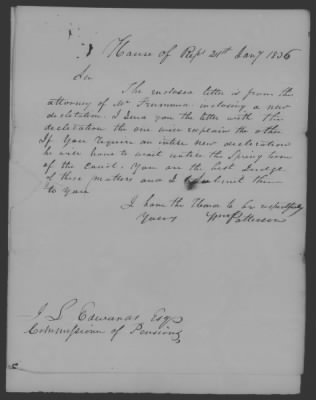 House of Reps 21st Jany 1836
Sir
The enclosed letter is from the
attorney of Mr inclosing a new
decleration. I send you the letter with the
decleration the one will explain the other
If you require an intire new decleration
he will have to wait untill the Spring term
of the Court. You are the best Judge
of these matters and I submit them
to you
I have the Honor to be respectfully
Yours Wm Patterson
J L Edwards Esqr
Commissioner of Pensions